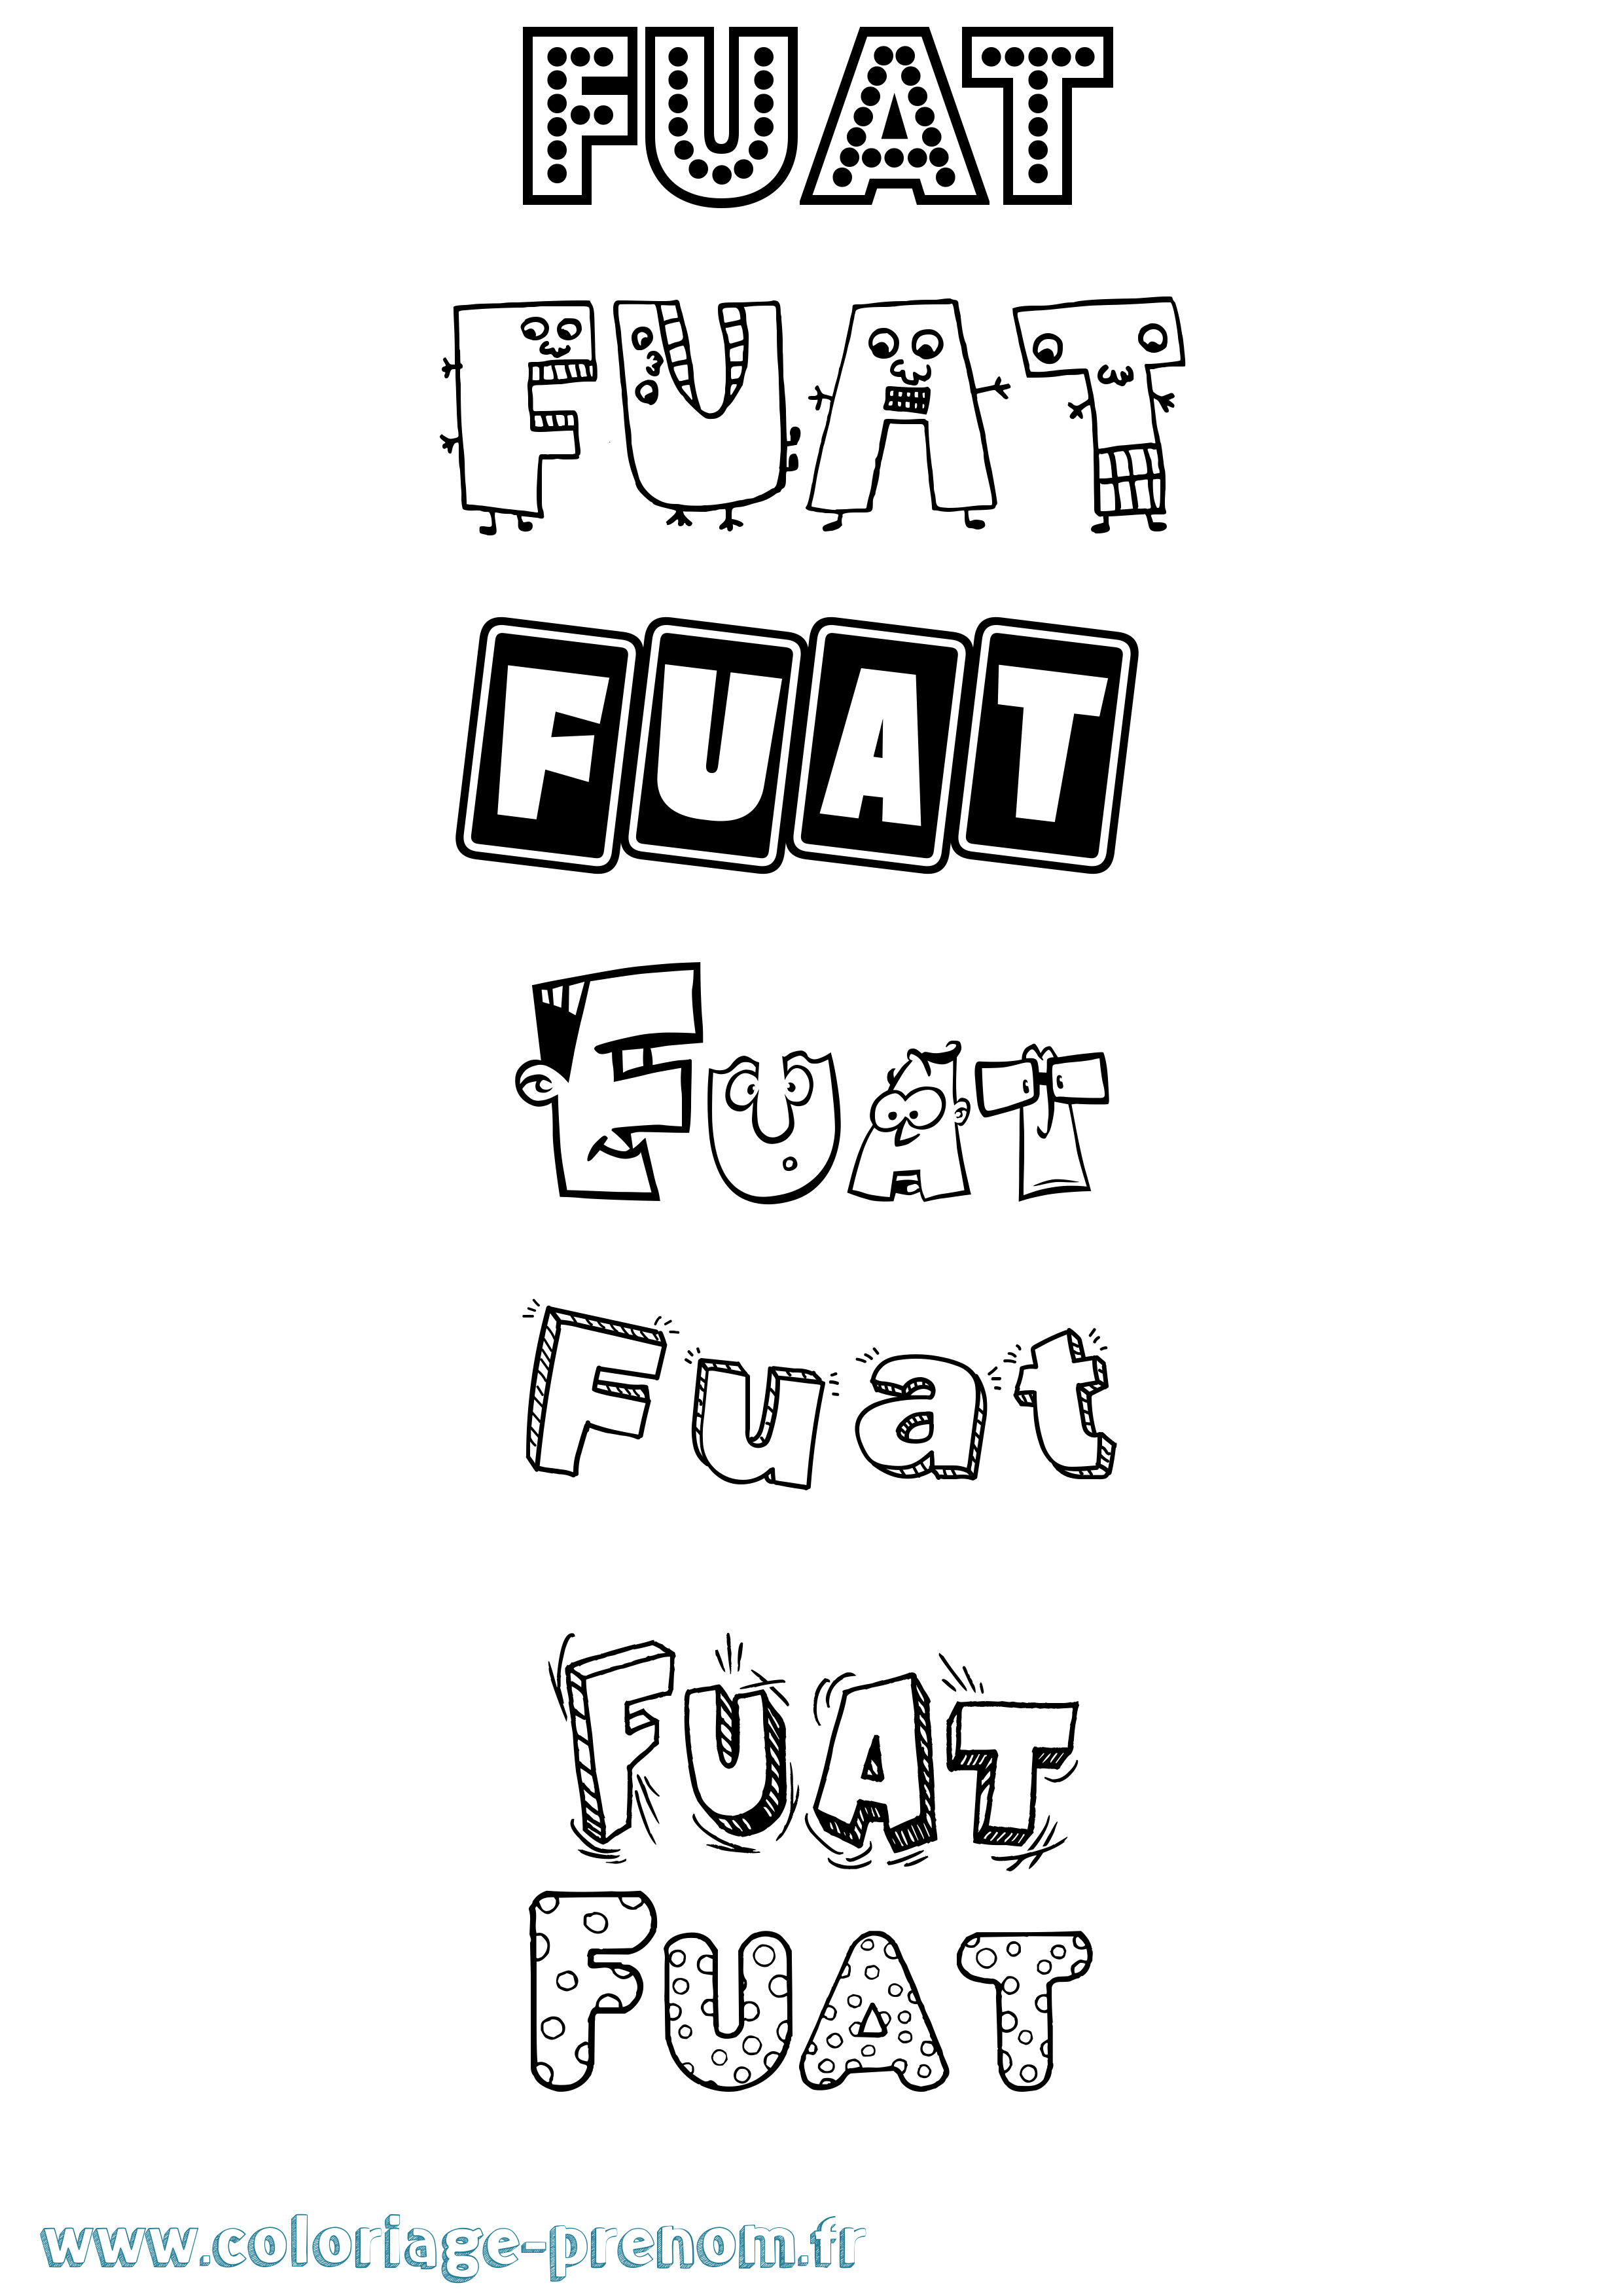 FUAT
FUAT
FUAT
Fuat
Fuat
FUAT
FUAT
www.coloriage-prenom.fr